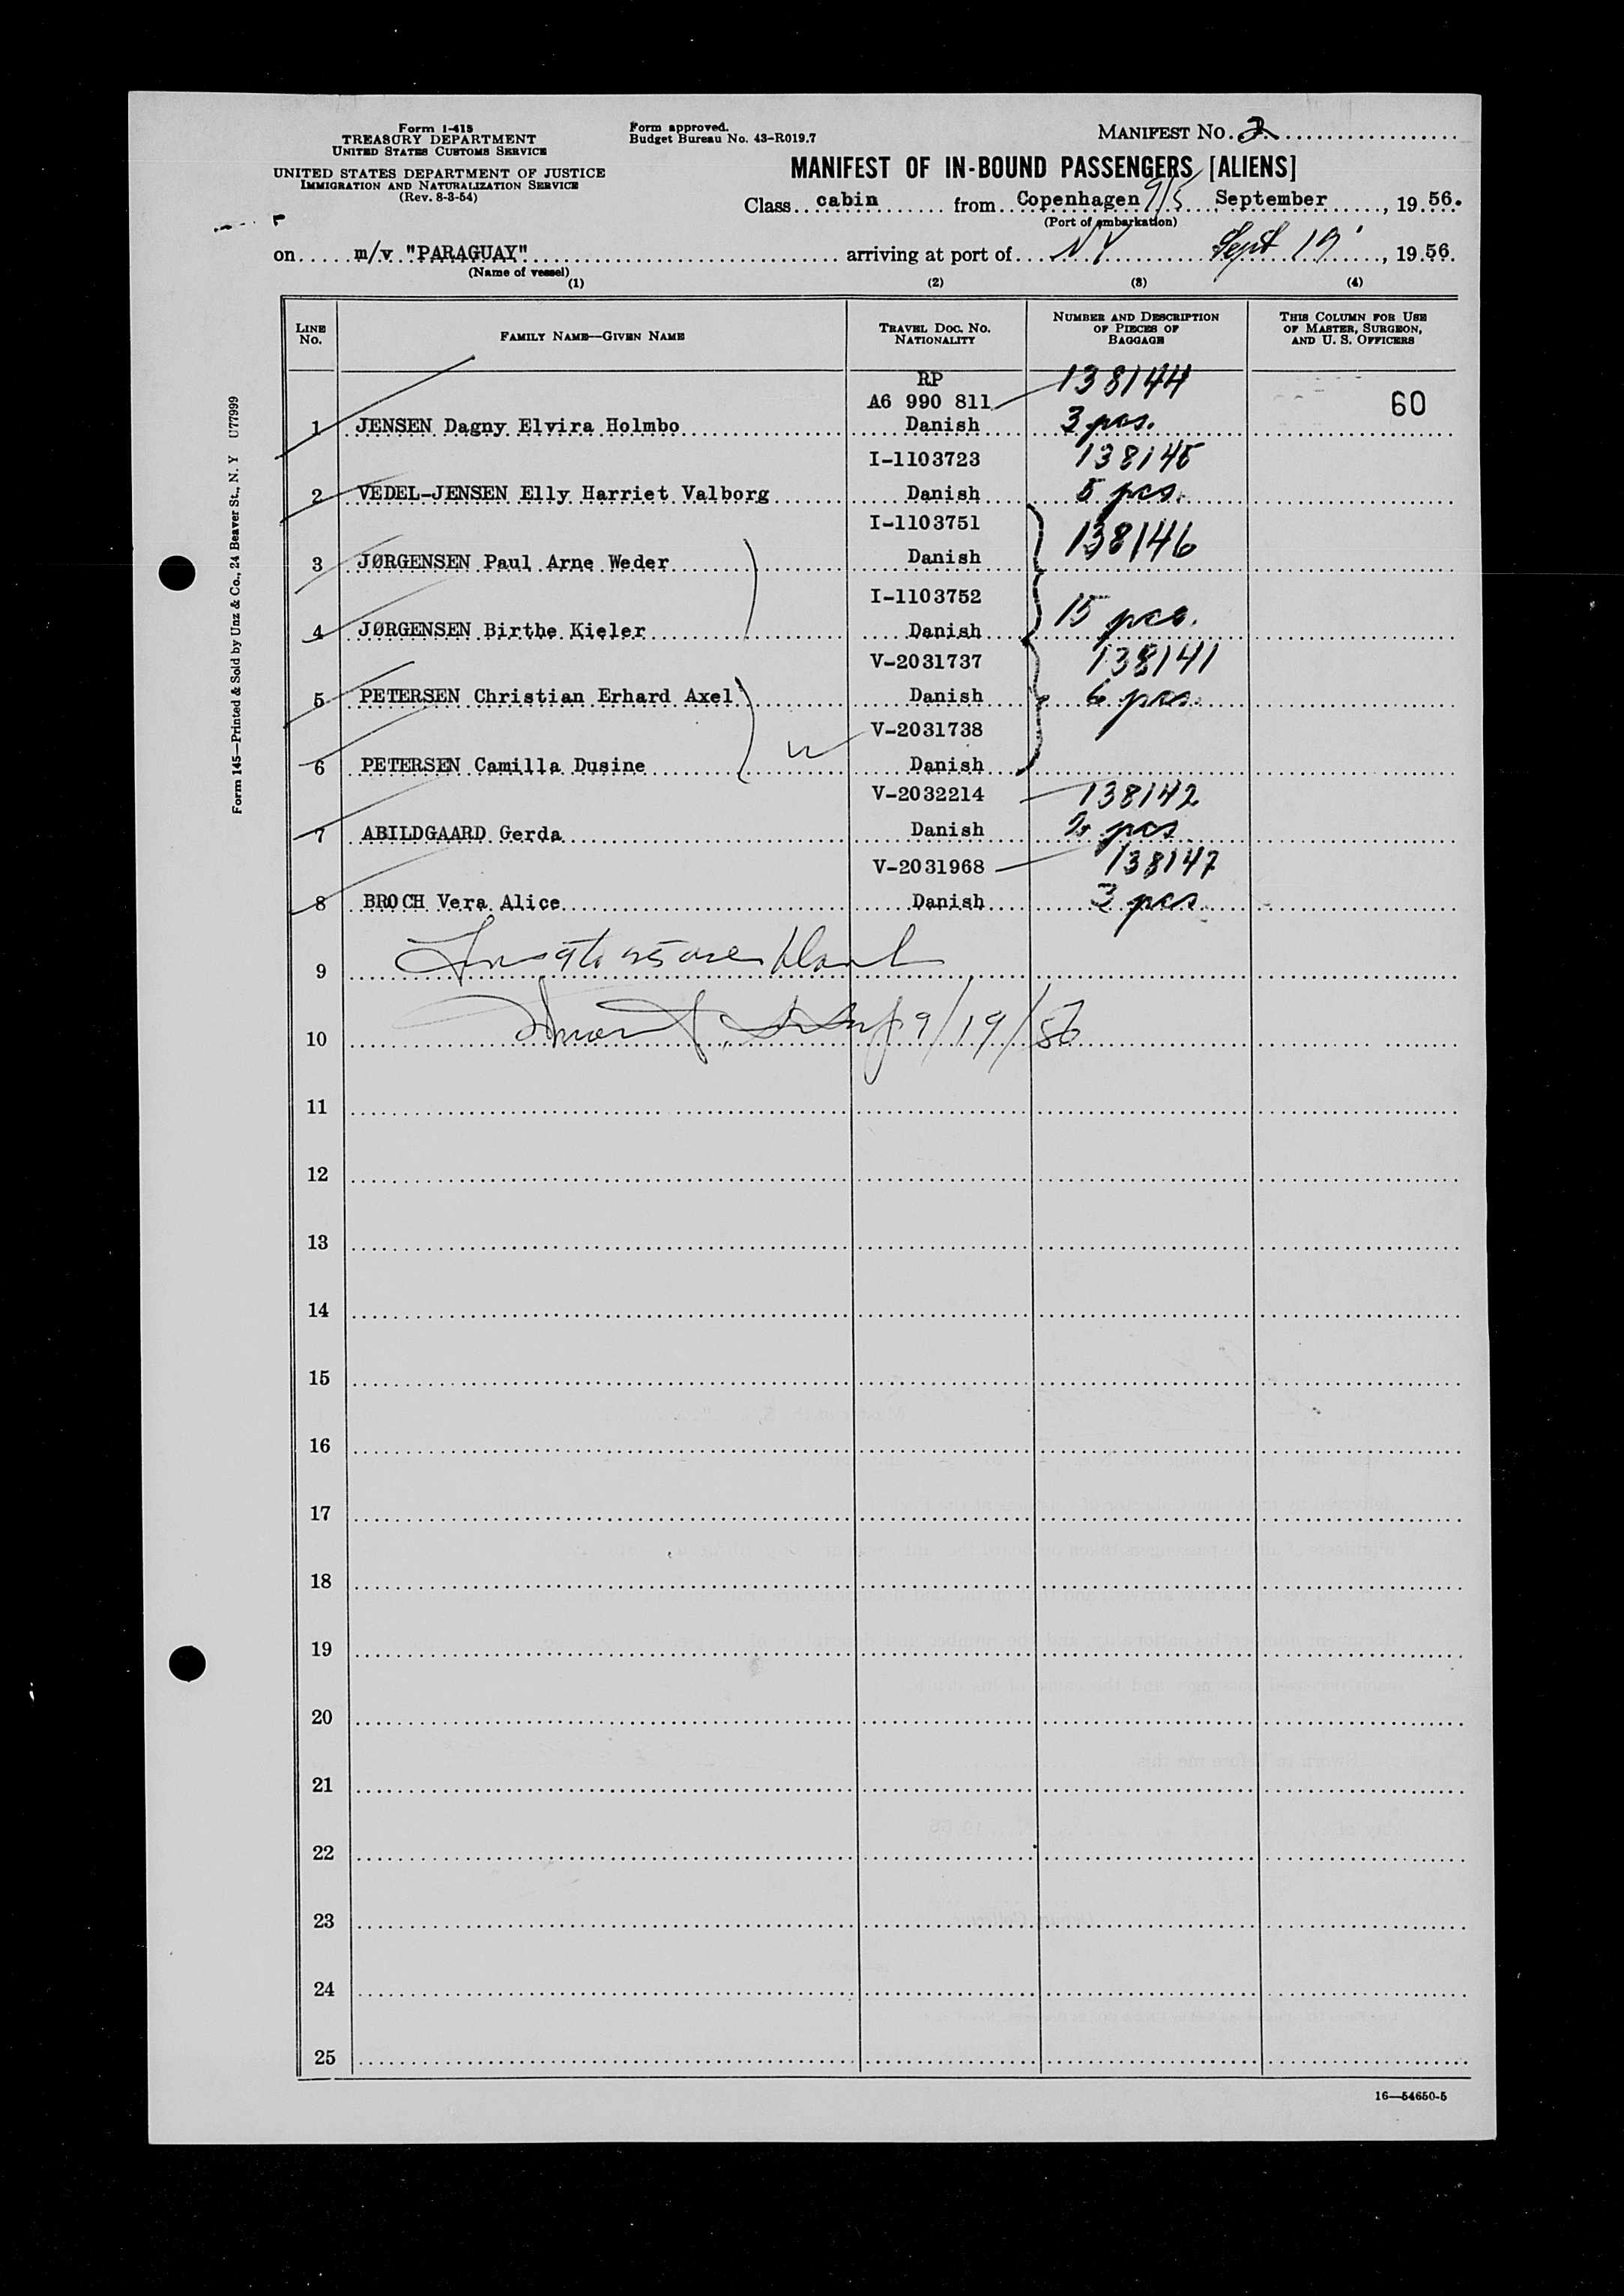 Form I-415
TREASURY DEPARTMENT
UNITED STATES CUSTOMS SERVICE
UNITED STATES DEPARTMENT OF JUSTICE
IMMIGRATION AND NATURALIZATION SERVICE
(Rev. 8-3-54)
Form approved.
Budget Bureau No. 43-R019.7
MANIFEST NO. 2
MANIFEST OF IN-BOUND PASSENGERS [ALIENS]
Class cabin from Copenhagen 9/5 September, 19 56.
(Port of embarkation)
on m/v "PARAGUAY" arriving at port of NY Sept 19, 19 56.
(Name of vessel)
(1) (2) (3) (4)
LINE No. FAMILY NAME—GIVEN NAME TRAVEL DOC. NO. NATIONALITY NUMBER AND DESCRIPTION OF PIECES OF BAGGAGE THIS COLUMN FOR USE OF MASTER, SURGEON, AND U. S. OFFICERS
RP 138144
A6 990 811 60
1 JENSEN Dagny Elvira Holmbo Danish 3 pcs.
I-1103723 138145
2 VEDEL-JENSEN Elly Harriet Valborg Danish 5 pcs.
I-1103751 138146
3 JØRGENSEN Paul Arne Weder Danish
I-1103752 15 pcs.
4 JØRGENSEN Birthe Kieler Danish
V-2031737 138141
5 PETERSEN Christian Erhard Axel Danish 6 pcs.
V-2031738
6 PETERSEN Camilla Dusine Danish
V-2032214 138142
7 ABILDGAARD Gerda Danish 2 pcs
V-2031968 138147
8 BROCH Vera Alice Danish 3 pcs
9 Lines 9 to 25 are blank
10 9/19/56
11
12
13
14
15
16
17
18
19
20
21
22
23
24
25
16—54650-5
Form 145—Printed & Sold by Unz & Co., 24 Beaver St., N. Y U77999